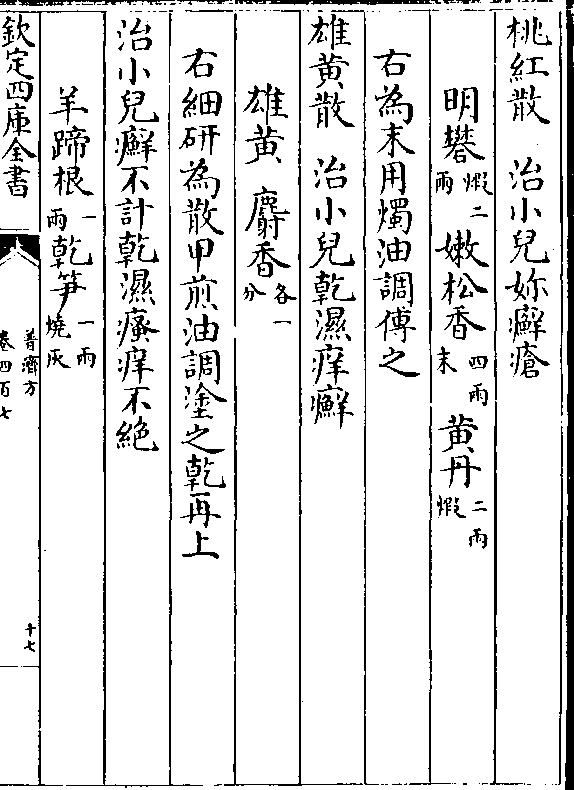 桃紅散　治小兒妳癬瘡
明礬煆二兩　嫩松香四兩末　黄丹二兩煆
右為末用燭油調傅之
雄黄散　治小兒乾濕痒癬
雄黄　麝香各一分
右細研為散甲煎油調塗之乾再上
治小兒癬不計乾濕瘙痒不絶
羊蹄根一兩　乾笋一兩燒灰
欽定四庫全書
普濟方
卷四百七
十七